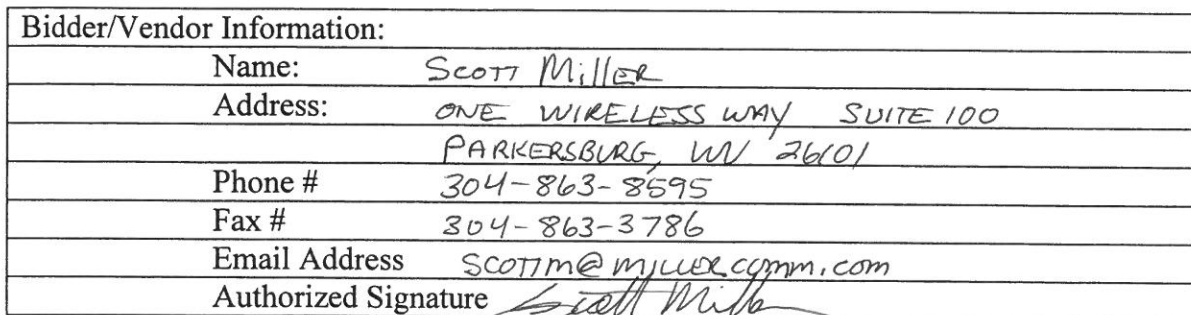 Bidder/Vendor Information:
Name: SCOTT MillER
Address: ONE WIRELESS WAY SUITE 100
PARKERSBURG, WV 26101
Phone # 304-863-8595
Fax # 304-863-3786
Email Address SCOTTM@MILLERCOMM.COM
Authorized Signature Scott Miller